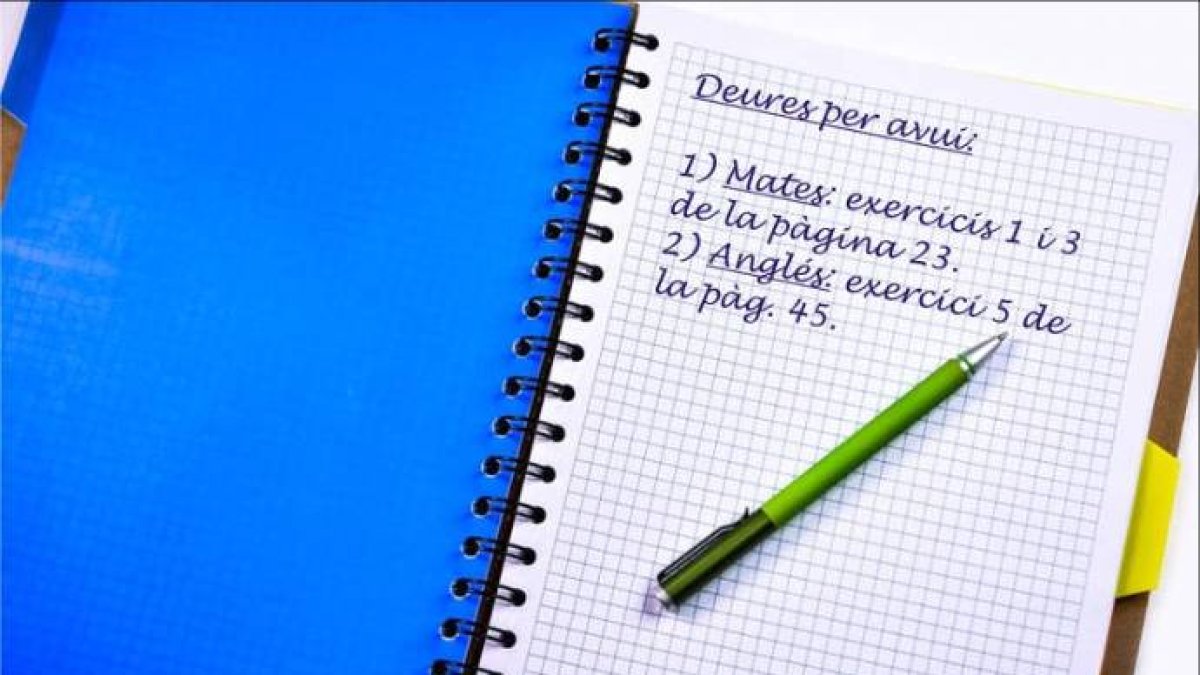 Deures per avui:
1) Mates: exercicis 1 i 3
de la pàgina 23.
2) Anglés: exercici 5 de
la pàg. 45.